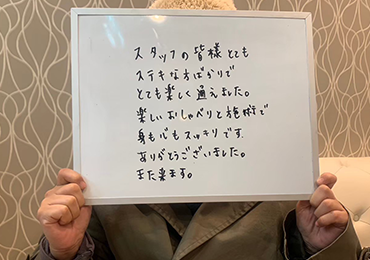 スタッフの皆様とても
ステキな方ばかりで
とても楽しく通えました。
楽しいおしゃべりと施術で
身も心もスッキリです。
ありがとうございました。
また来ます。